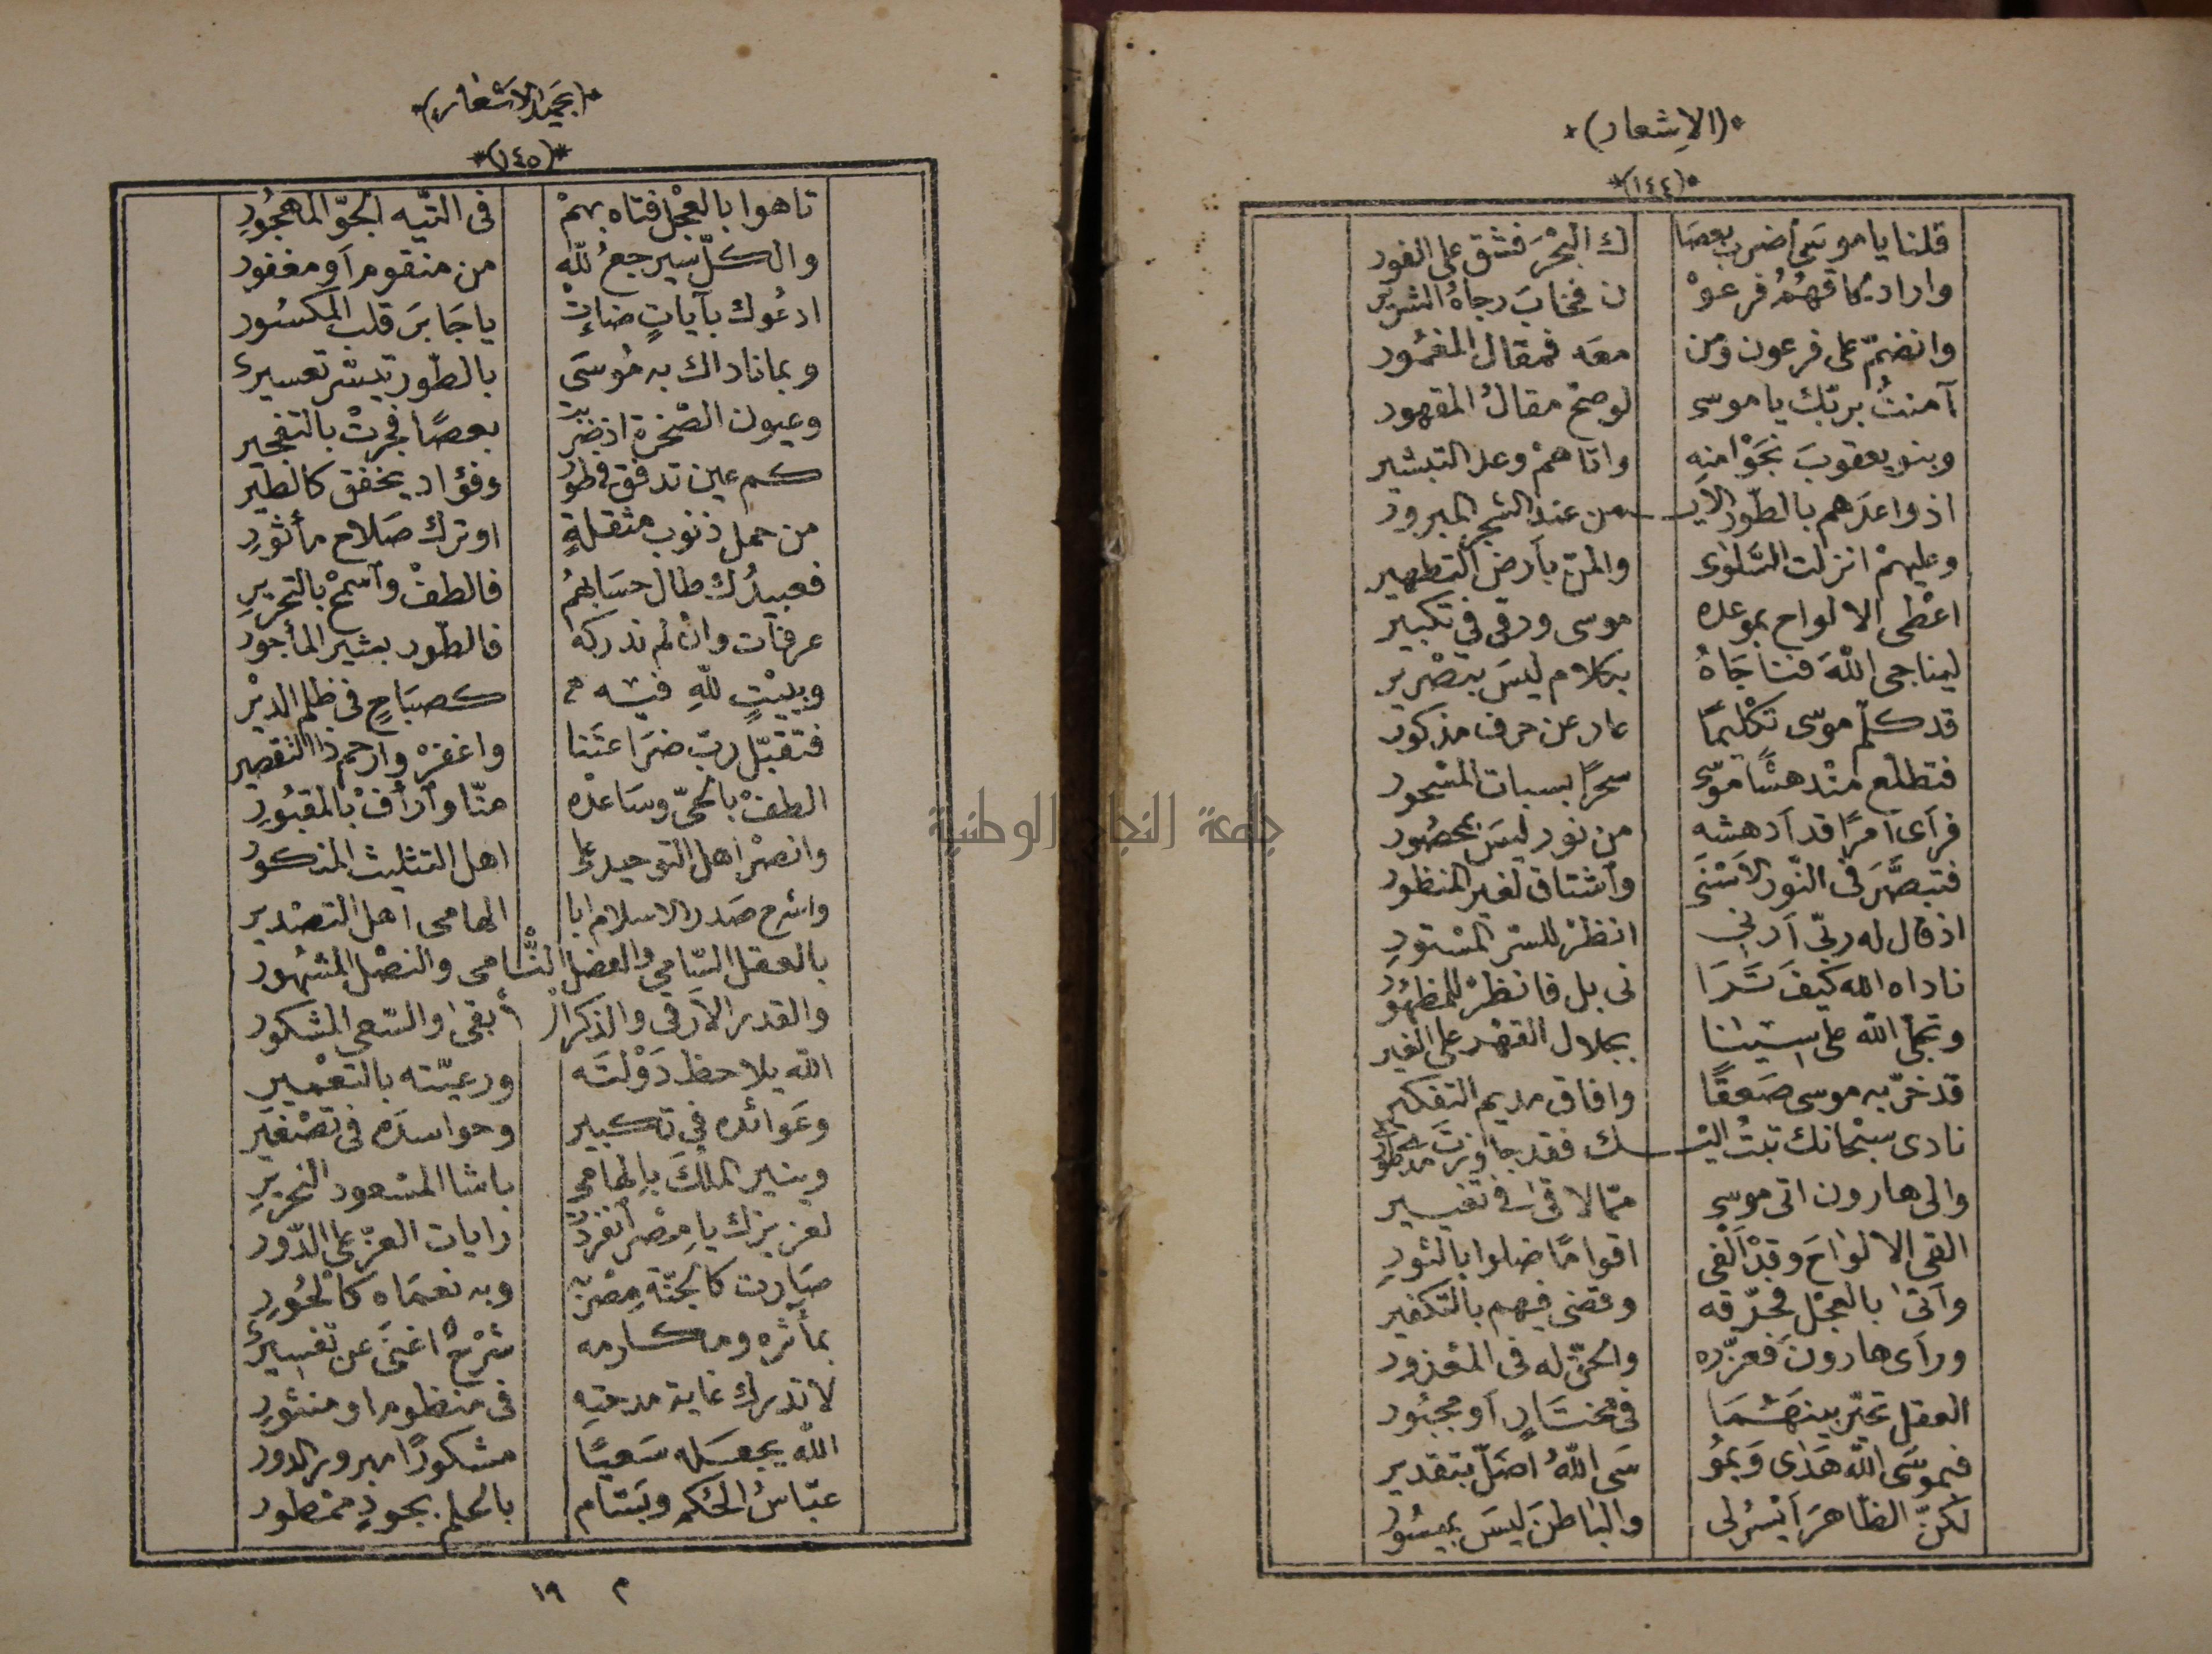 *(الإشعار)*
*(١٤٤)*
قلنا يا موسى أضرب بعصا ك البحْرَ فشق على الفور
واراد لحاقهُمُ فرعوْ ن فخابَ رجاهُ الشرّير
وانضمّ على فرعون ومن معه فمقال المغمُور
آمنتُ بربّك يا موسى لو صحّ مقالُ المقهور
وبنو يعقوبَ نجَوْا منه واتاهمْ وعد التبشير
اذ واعدَهم بالطّور الأيـ ـمن عند الشجر المبرور
وعليهمْ انزلت السَّلوى والمنّ بأرض التطهير
اعْطى الالواح بموعده موسى ورقى في تكبير
ليناجى اللهَ فناجَاهُ بكلام ليسَ بتصْرير
قد كلّم موسى تكْليمًا عار عن حرف مذكور
فتطلّع منْدهشًا موسى سحرًا بسبات المسْحور
فرآى أمرًا قد أدهشه من نور ليسَ بمحصُور
فتبصَّرَ فى النّور الأسْنَى وأشتاق لغير المنظور
اذ قال له ربّى أرنى انظرْ للسّر المسْتور
ناداه الله كيفَ تَرَا نى بل فانظرْ للمظهُور
وتجلّى الله على سينا بجلال القهْر على الغير
قد خرّ به موسى صَعقًا وافاق مديم التفكير
نادى سبْحانك تبتُ اليْـ ـك فقد جاوزتَ
والى هارون اتى موسى ممّا لاقى فى تغيير
القى الالواحَ وقدْ ألْفى اقوامًا ضلوا بالثور
وآتى بالعجْل فحرّقه وقضى فيهم بالتكفير
ورآى هارونَ فعزّره والحقّ له فى المعْزور
العقل تحيّر بينهُمَا فى مختَارٍ أو مجبُور
فبموسَى اللهُ هَدَى وبمُو سَى اللهُ اضَلّ بتقدير
لكنّ الظّاهرَ أيْسُر لى والباطنَ ليسَ بميسُور
جامعة النجاح الوطنية
*(بحميد الأشعار)*
*(١٤٥)*
تاهوا بالعجْل فتاه بهمْ فى التّيه الجوّ المهجُورِ
والكلّ سيرجعُ للهِ من منقوم أو مغفور
ادعُوك بآياتٍ ضاءتْ يا جَابرَ قلب المكسُور
وبما ناداك به مُوسَى بالطّور تيسّر تعسيرى
وعيون الصّخرة اذ ضربت بعصًا فجرتْ بالتفجير
كم عين تدفق فى طور وفؤاد يخفق كالطير
من حمل ذنوب مثقلةٍ او ترك صَلاح مأثورِ
فعبيدُك طال حسَابهمُ فالطفْ وآسمحْ بالتحريرِ
عرفات وانْ لم ندركه فالطّور بشير المأجور
وببيْتٍ للهِ فيه كصبَاحٍ فى ظلم الديْر
فتقبّل ربّ ضرَاعتَنا واغفرْ وارحم ذا التقصير
الطفْ بالحىّ وسَاعدْه منّا وأرأفْ بالمقبُورِ
وانصرْ اهل التوحيد على اهل التثليث المنكور
واشرح صَدر الاسلام ابا الهامى اهل التصْدير
بالعقل السّامى والفضل النّامى والنصْل المشهُور
والقدر الأرقى والذكر الـ أبقى والسّعى المشكور
الله يلاحظ دَوْلتَه ورعيّته بالتعْمير
وعَوائده فى تكبير وحواسدَه فى تصْغير
وينير الملكَ بإلهامى باشا المسْعود النحرير
لعزيزك يا مصْر انفردت رايات العزّ على الدّور
صَارت كالجنّة مصْرُ وبه نعمَاه كالحُورِ
بمأثره ومكارمه شرْحٌ اغنى عن تفسير
لا تدرك غاية مدحته فى منظوم او منثور
الله يجعَله سَعيًا مشكورًا مبرور الدور
عبّاسُ الحُكمِ وبسّام بالحلم بجودٍ ممْطور
١٩ م